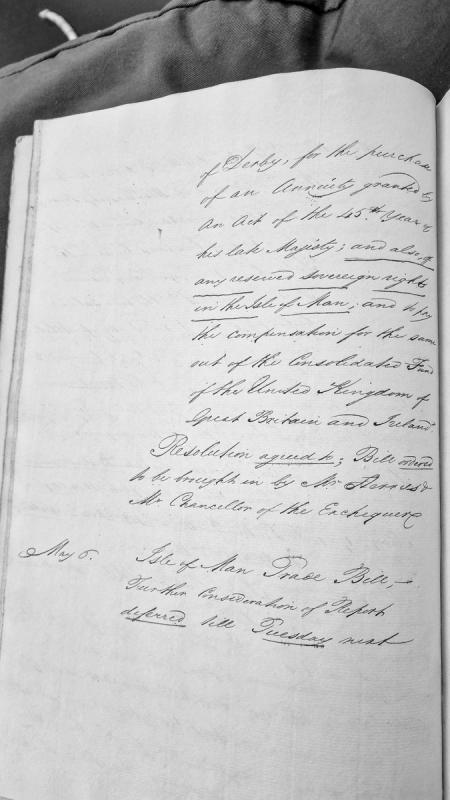 of Derby, for the purchase
of an Annuity granted by
an Act of the 45.th Year of
his late Majesty; and also of
any reserved Sovereign rights
in the Isle of Man; and to pay
the compensation for the same
out of the Consolidated Fund
of the United Kingdom of
Great Britain and Ireland
Resolution agreed to; Bill ordered
to be brought in by Mr Herries &
Mr Chancellor of the Exchequer
May 6. Isle of Man Trade Bill,—
Further Consideration of Report
deferred till Tuesday next